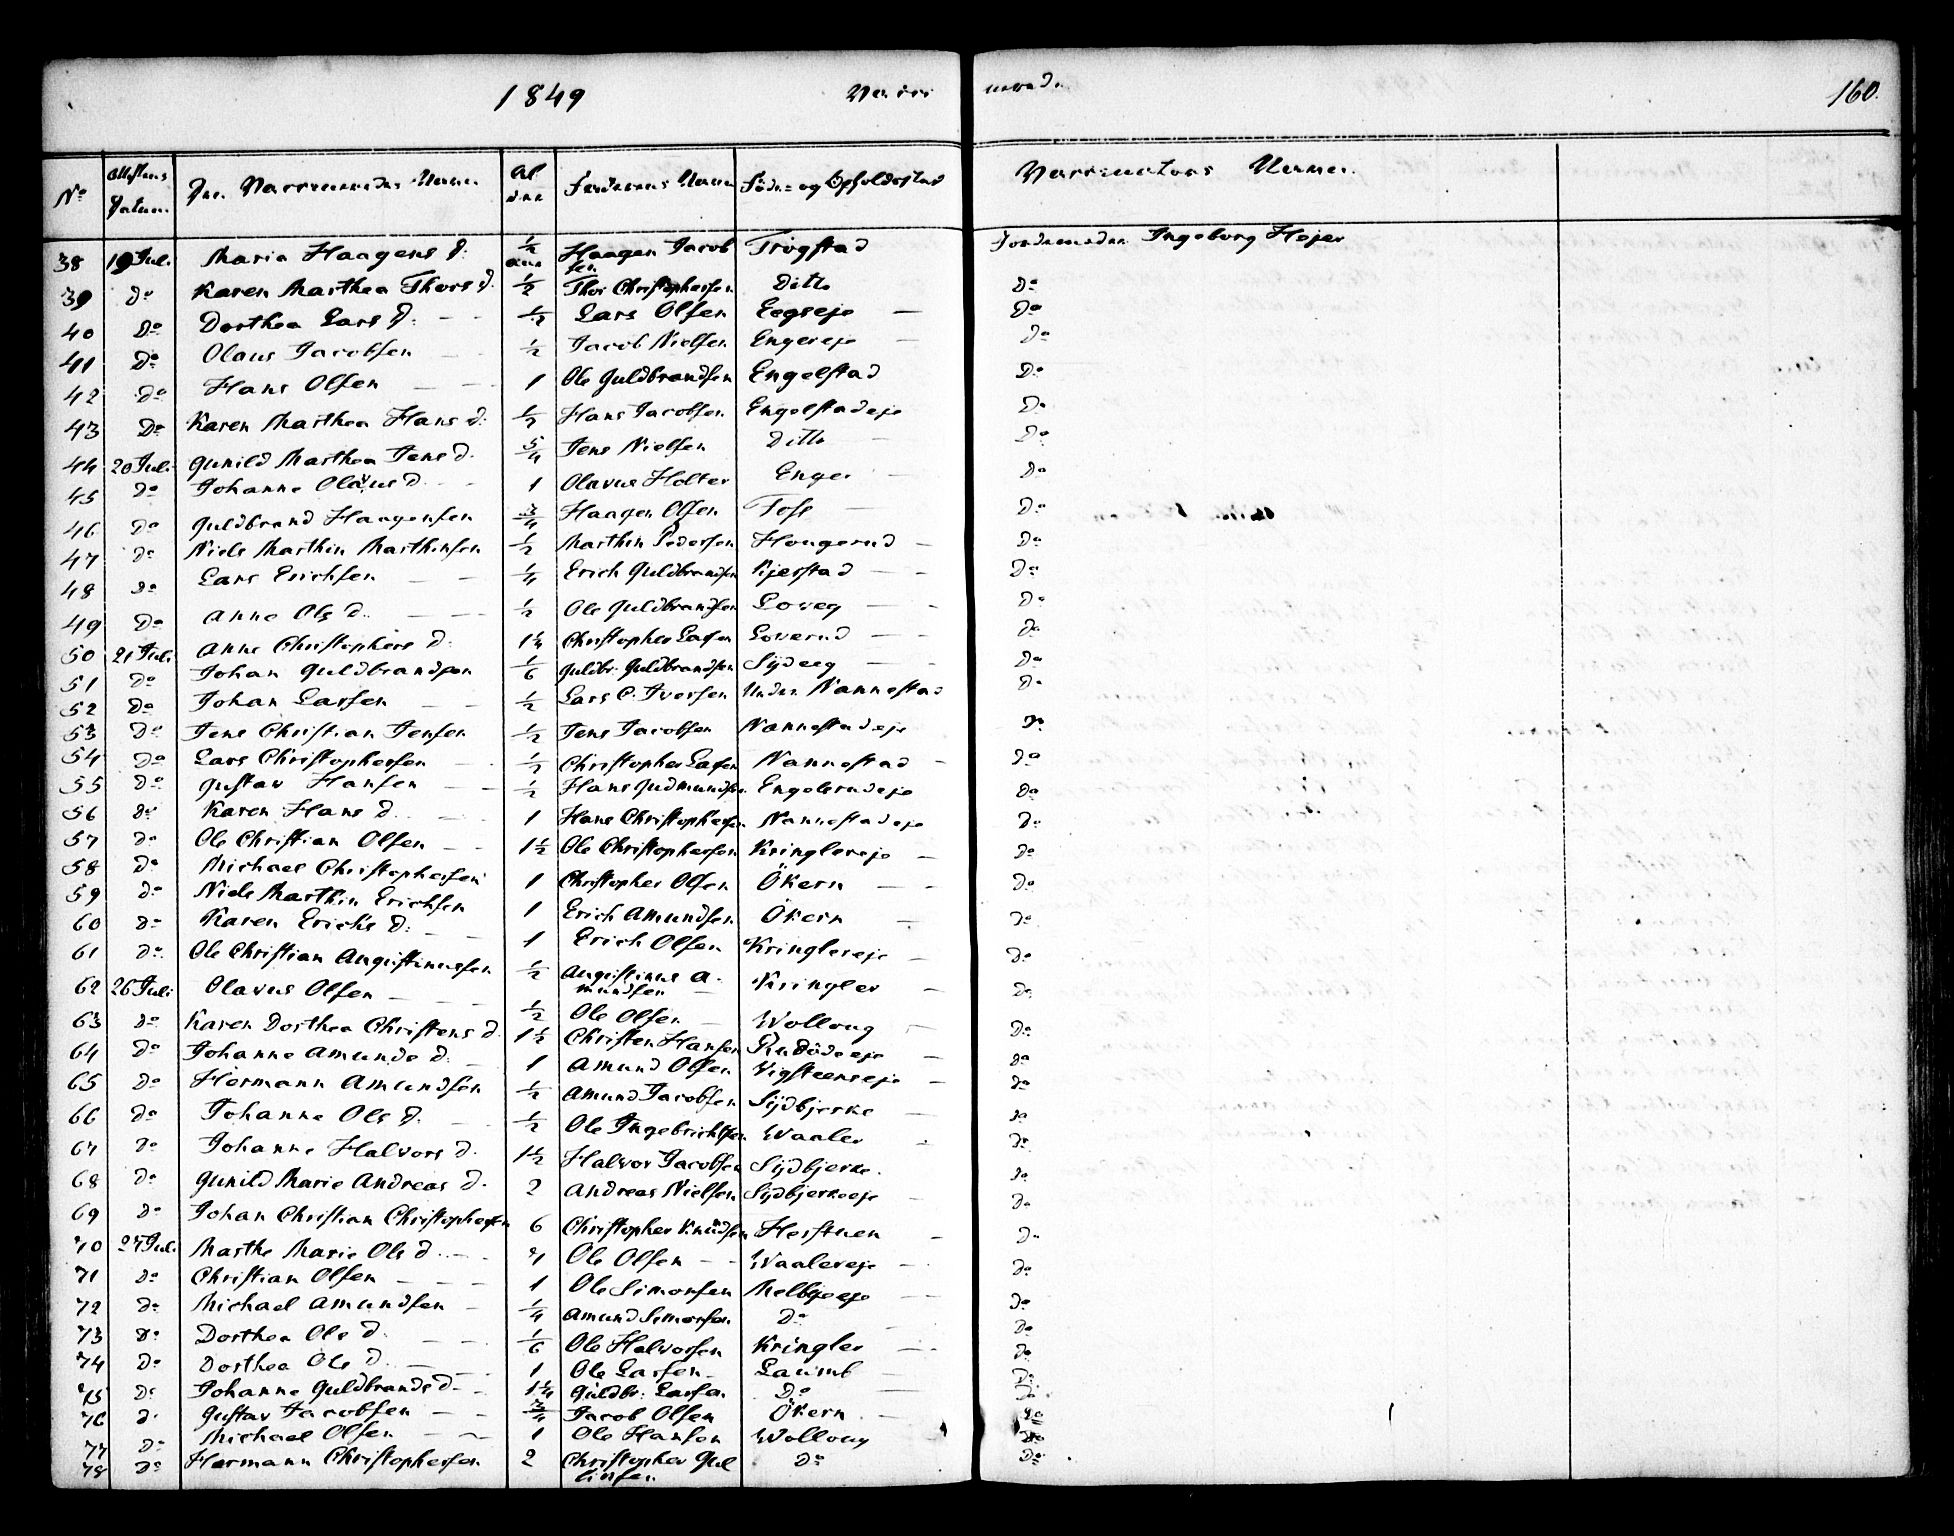 1849 Vacci nerede. 160.
No Attestens Datum. Den Vaccineredes Navn Alder Faderens Navn Føde- og Opholdssted Vaccinateurs Navne.
38 19 Juli Maria Haagens D. 1/2 aar Haagen Jacobsen Trögstad Jordemoder Ingeborg Hejer
39 Do Karen Marthea Thors D. 1/2 Thor Christophersen Ditto Do
40 Do Dorthea Lars D. — 1/2 Lars Olsen Eegseje — Do
41 Do Olaus Jacobsen — 1/2 Jacob Nielsen Engereje — Do
42 Do Hans Olsen — 1 Ole Guldbrandsen Engelstad Do
43 Do Karen Marthea Hans D. 1/2 Hans Jacobsen Engelstadeje Do
44 20 Juli Gunild Marthea Jens D. 5/4 Jens Nielsen Ditto Do
45 Do Johanne Olavus D. 1 Olavus Holter Enger — Do
46 Do Guldbrand Haagensen 3/4 Haagen Olsen Tofs — Do
47 Do Niels Marthin Marthinsen 1/2 Marthin Pedersen Hougerud — Do
48 Do Lars Erichsen — 1/4 Erich Guldbrandsen Kjerstad — Do
49 Do Anne Ols D. — 1/2 Ole Guldbrandsen Loveg — Do
50 21 Juli Anne Christophers D. 1 1/2 Christopher Larsen Loverud — Do
51 Do Johan Guldbrandsen 1/6 Guldbr. Guldbrandsen Sydeeg — Do
52 Do Johan Larsen — 1/2 Lars C. Iversen Under Nannestad Do
53 Do Jens Christian Jensen 1/2 Jens Jacobsen Nannestadeje Do
54 Do Lars Christophersen — 1/2 Christopher Larsen Nannestad — Do
55 Do Gustav Hansen — 1/2 Hans Gudmundsen Engelerudeje Do
56 Do Karen Hans D. — 1 Hans Christophersen Nannestadeje Do
57 Do Ole Christian Olsen — 1 1/2 Ole Christophersen Kringlereje — Do
58 Do Michael Christophersen 1 Christopher Olsen Ökern — Do
59 Do Niels Marthin Erichsen 1 Erich Amundsen Ökern — Do
60 Do Karen Erichs D. — 1 Erich Olsen Kringlereje — Do
61 Do Ole Christian Augustinussen 1/2 Augustinus Amundsen — Kringler — Do
62 26 Juli Olavus Olsen — 1/2 Ole Olsen — Wolloug — Do
63 Do Karen Dorthea Christens D. 1 1/2 Christen Hansen Rudödeeje — Do
64 Do Johanne Amunds D. 1 Amund Olsen Vigsteenseje — Do
65 Do Hermann Amundsen 1/2 Amund Jacobsen Sydbjerke — Do
66 Do Johanne Ols D. — 1/2 Ole Ingebrichtsen Waaler Do
67 Do Johanne Halvors D. 1 1/2 Halvor Jacobsen Sydbjerke. Do
68 Do Gunild Marie Andreas D. 2 Andreas Nielsen Sydbjerkeeje — Do
69 Do Johan Christian Christophersen 6 Christopher Knudsen Herstuen — Do
70 27 Juli Marthe Marie Ols D. — Ole Olsen — Waalereje — Do
71 Do Christian Olsen — 1 Ole Simonsen Melbyeeje — Do
72 Do Michael Amundsen — 1/4 Amund Simonsen Do — Do
73 Do Dorthea Ols D. — 1/6 Ole Halvorsen Kringler — Do
74 Do Dorthea Ols D. — 1 Ole Larsen — Laumb — Do
75 Do Johanne Guldbrands D. — 1 1/4 Guldbr. Larsen Do — Do
76 Do Gustav Jacobsen — 3/4 Jacob Olsen Ökern — Do
77 Do Michael Olsen — 1 Ole Hansen Wolloug Do
78 Do Hermann Christophersen 2 Christopher Gullinsen Do Do